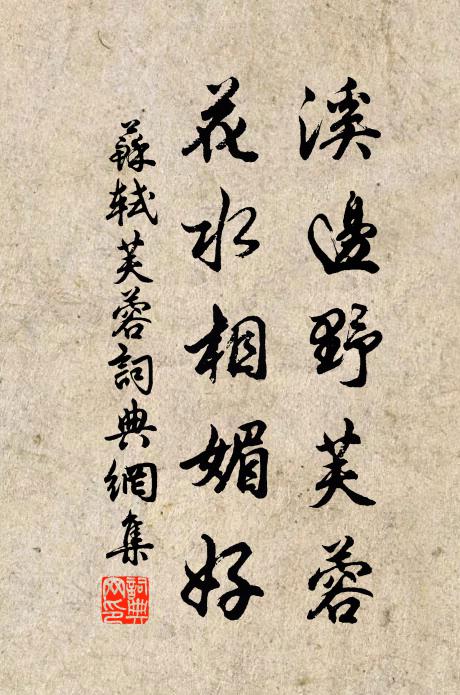 溪邊野芙蓉
花水相媚好
蘇軾芙蓉詞典網集
詞典
网印